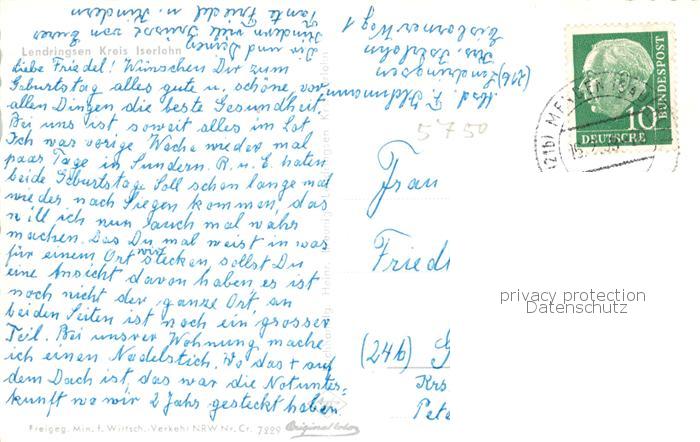 Lendringsen Kreis Iserlohn
Liebe Friedel! Wünschen Dir zum
Geburtstag alles gute u. schöne, vor
allen Dingen die beste Gesundheit.
Bei uns ist soweit alles im Lot
Ich war vorige Woche wieder mal
paar Tage in Sundern. R. u. E. haten
beide Geburtstag. Soll schon lange mal
wieder nach Siegen kommen, das
will ich nun auch mal wahr
machen. Das Du mal weist in was
für einem Ort wir stecken sollst Du
eine Ansicht davon haben, es ist
noch nicht der ganze Ort, an
beiden Seiten ist noch ein grosser
Teil. Bei unsrer Wohnung mache
ich einen Nadelstich. Wo das + auf
dem Dach ist, das war die Notunter-
kunft wo wir 2 Jahr gesteckt haben
Dir und Deinen
Kindern viele Grüsse von Eurer
Tante Friedel u. Kindern
Abs.
(21b) Lendringsen
Krs. Iserlohn
Eisborner Weg 1
5750
Frau
Friedr
(24b) G
Krs
Pete
10
DEUTSCHE
BUNDESPOST
(21b) MENDEN (SAU
privacy protection
Datenschutz
Freigeg. Min. f. Wirtsch.-Verkehr NRW Nr. Cr. 7229
Original color